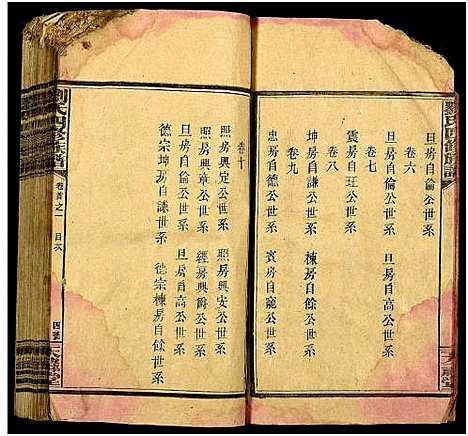 劉氏四修族譜
卷六
旦房自倫公世系 旦房自高公世系
卷七
震房子玨公世系
卷八
坤房自謙公世系 棟房自餘公世系
卷九
忠房自寬公世系 賓房自寵公世系
卷十
熙房興定公世系 照房興安公世系
熙房興章公世系 經房興爵公世系
旦房自倫公世系 旦房自高公世系
德宗坤房自謙世系 德宗棟房自餘世系
劉氏四修族譜
卷首之一
目次